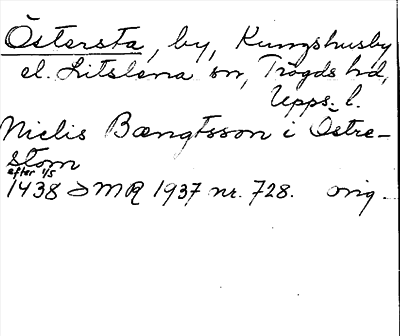 Östersta, by, Kungshusby
el. Litslena sn, Trögds hd,
Upps. l.
Nielis Bængtsson i Østre-
stom
efter 1/5
1438 SMR 1937 nr. 728. orig.